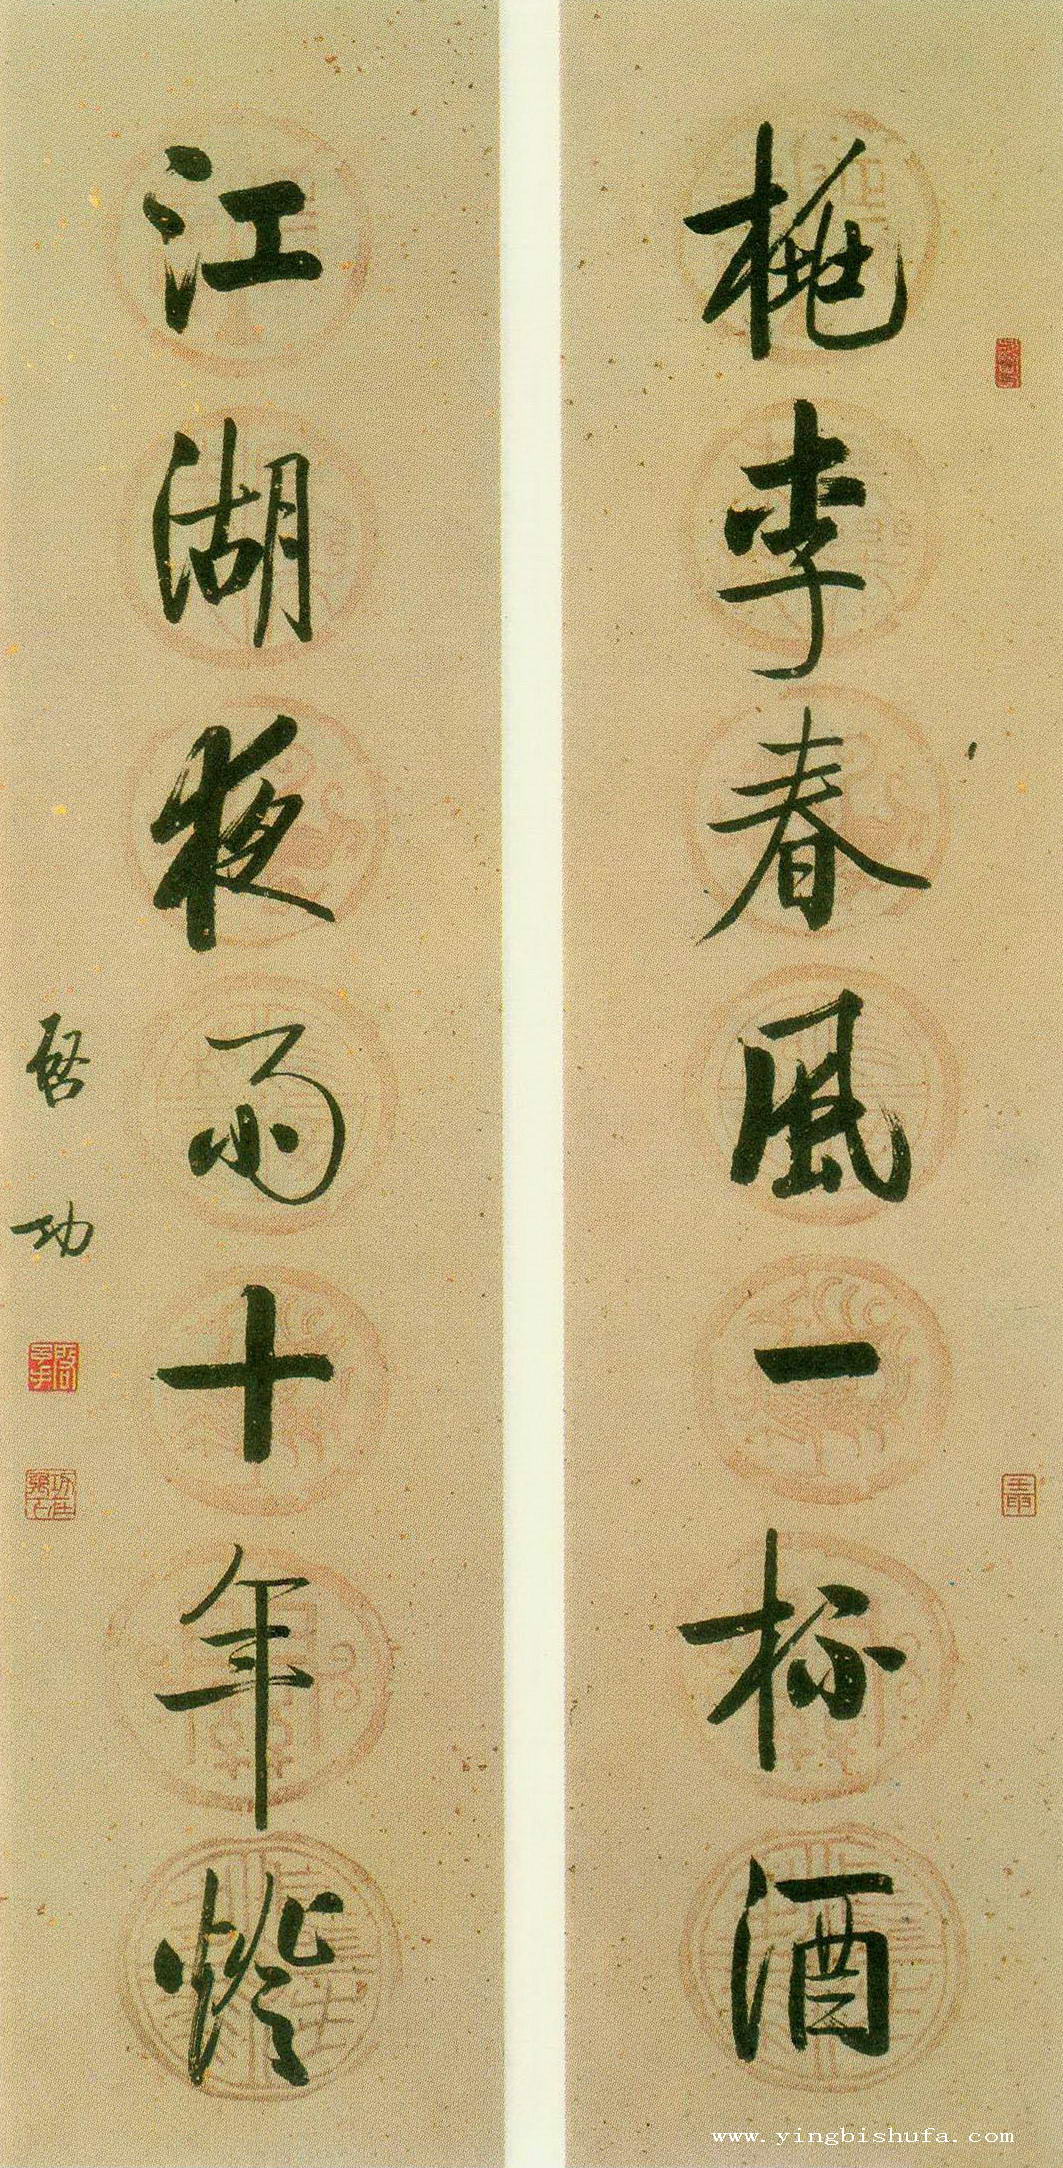 桃李春風一杯酒
江湖夜雨十年燈
啓功
www.yingbishufa.com